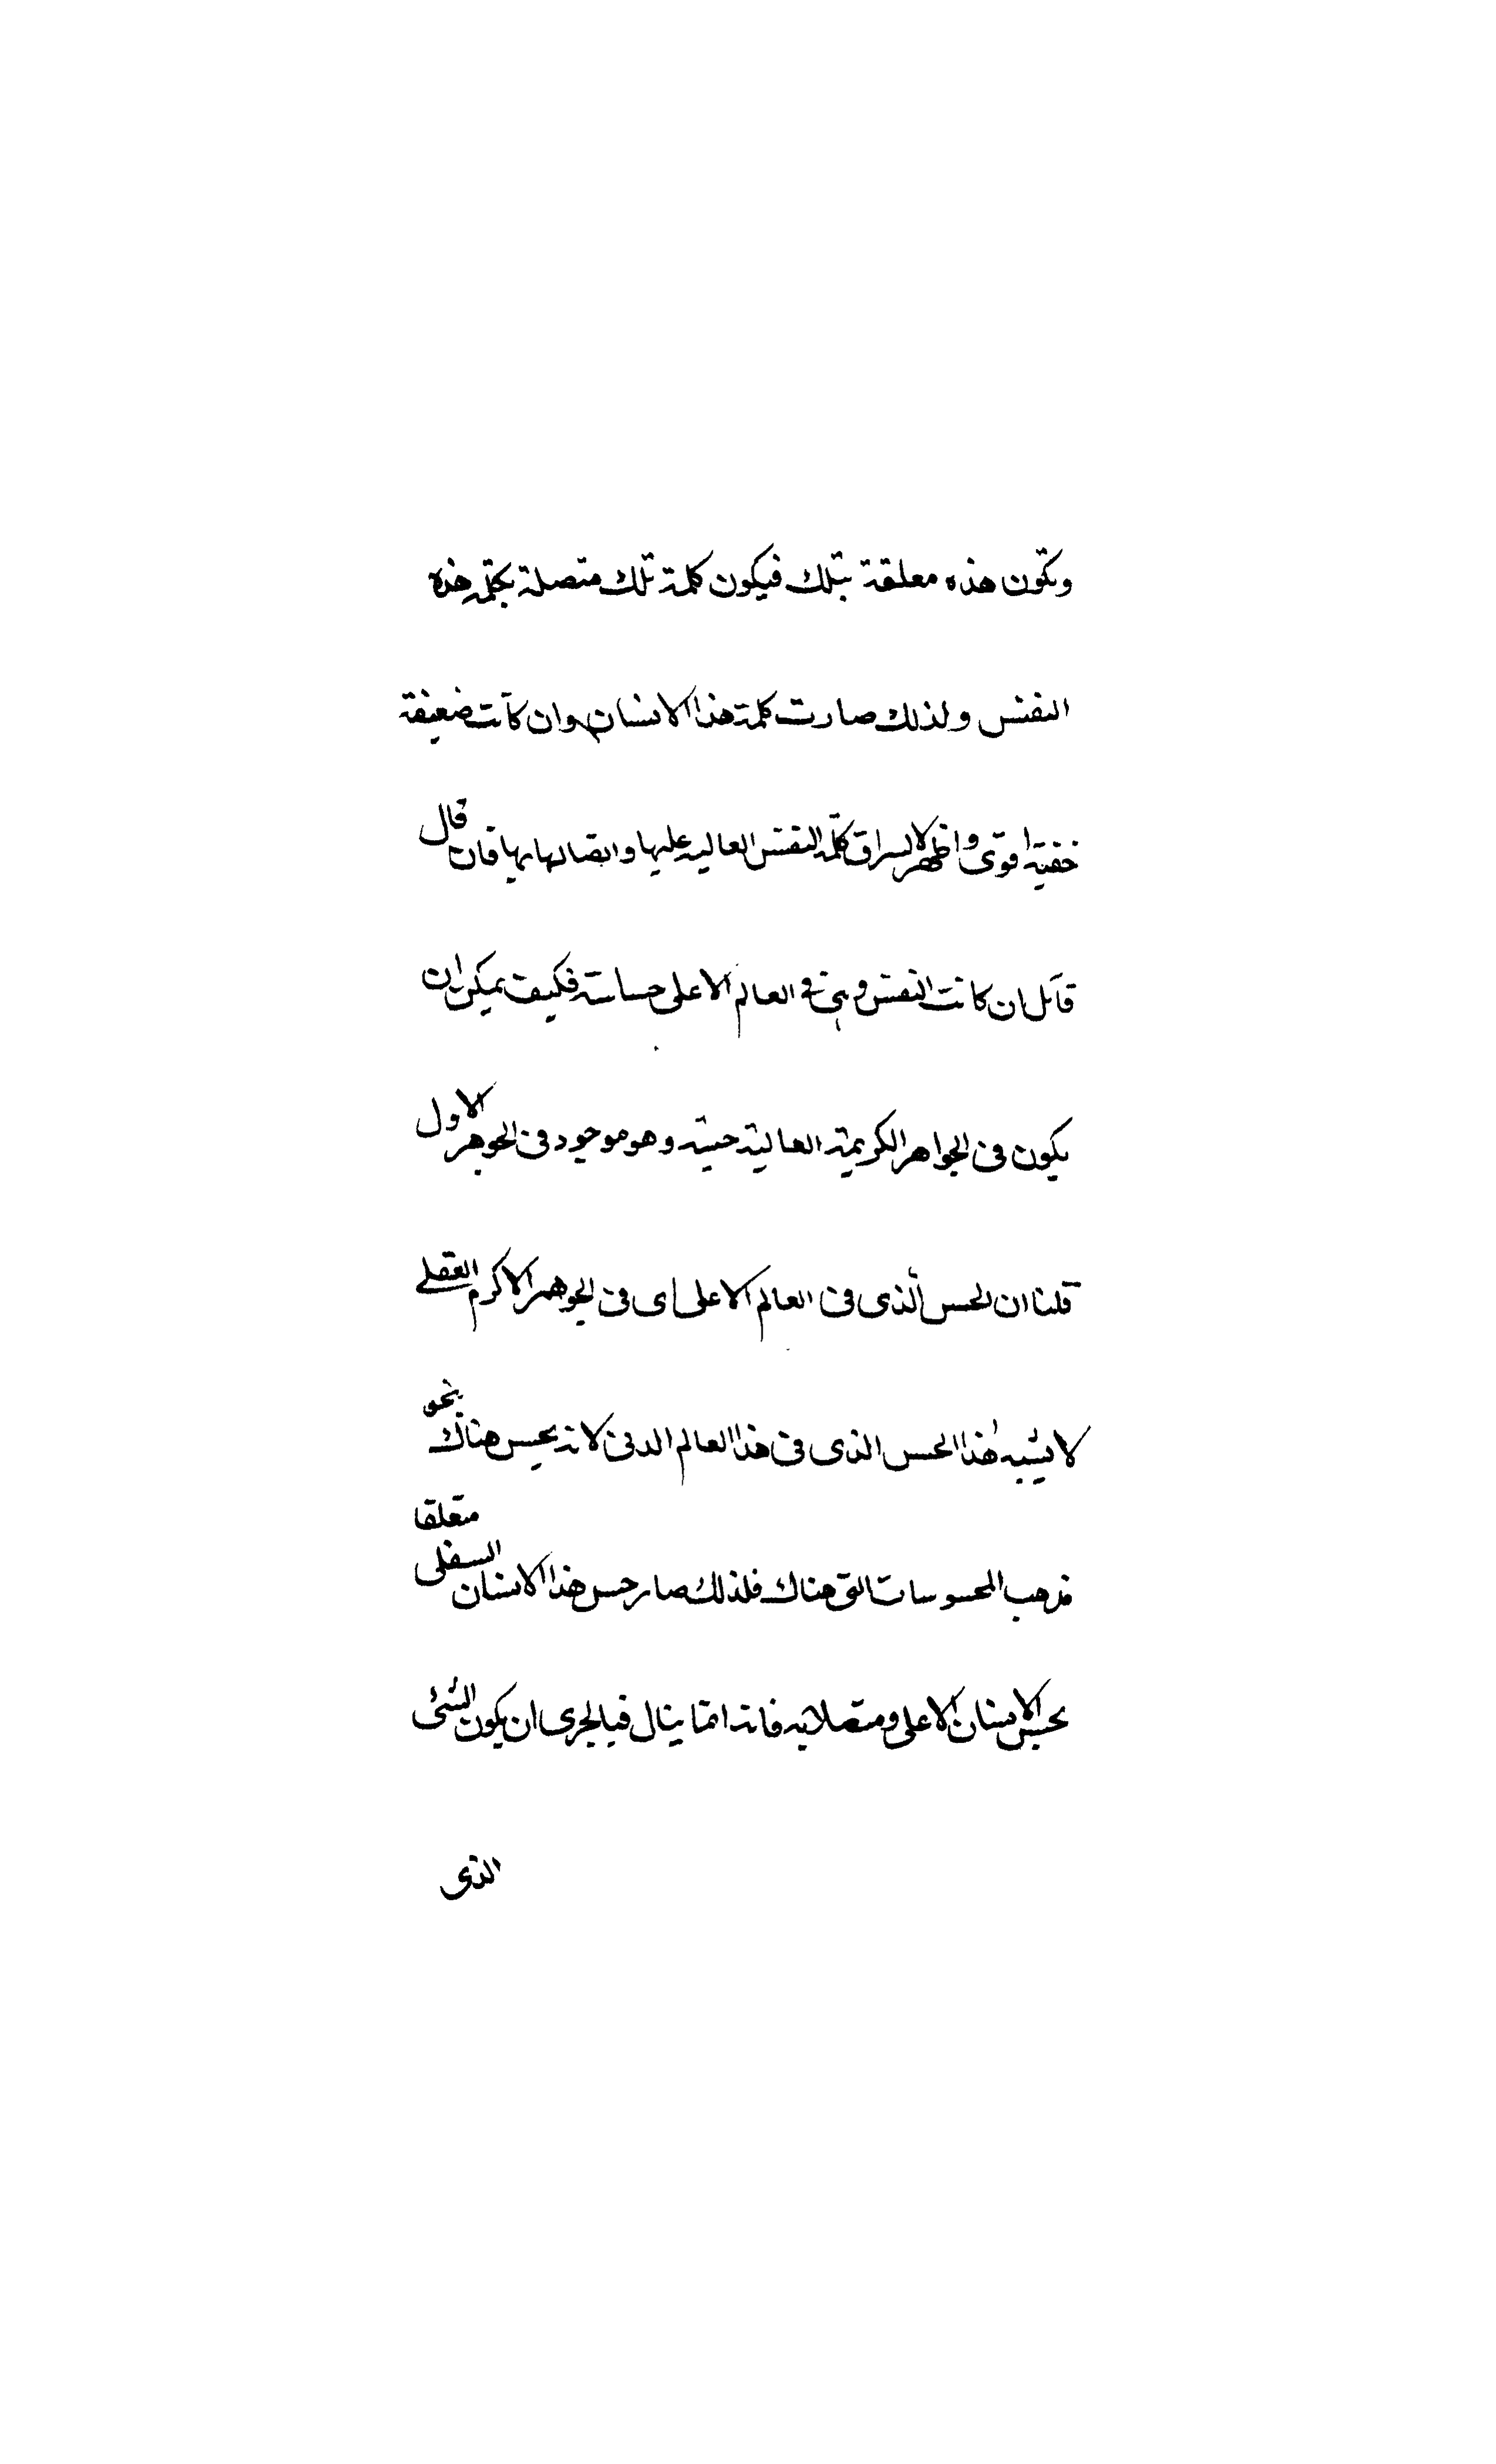 وتكون هذه معلقة بتلك فيكون كلمة تلك متصلة بكلمة هذه
النفس ولذلك صارت كلمة هذا الانسان وان كانت ضعيفة
خفية اقوى واظهر لاشراق كلمة النفس العالية عليها واتصالها بها فان قال
قائل ان كانت النفس وهى فى العالم الاعلى حساسة فكيف يمكن ان
يكون فى الجواهر الكريمة العالية حسية وهو موجود فى الجوهر الاول
قلنا ان الحس الذى فى العالم الاعلى اى فى الجوهر الاكرم العقلى
لا يشبه هذا الحس الذى فى هذا العالم الدنى لانه يحس هناك نحو
مذهب المحسوسات التى هناك فلذلك صار حس هذا الانسان السفلى متعلقا
بحس الانسان الاعلى ومتصلا به فانه انما ينال فبالحرى ان يكون الشئ
الذى